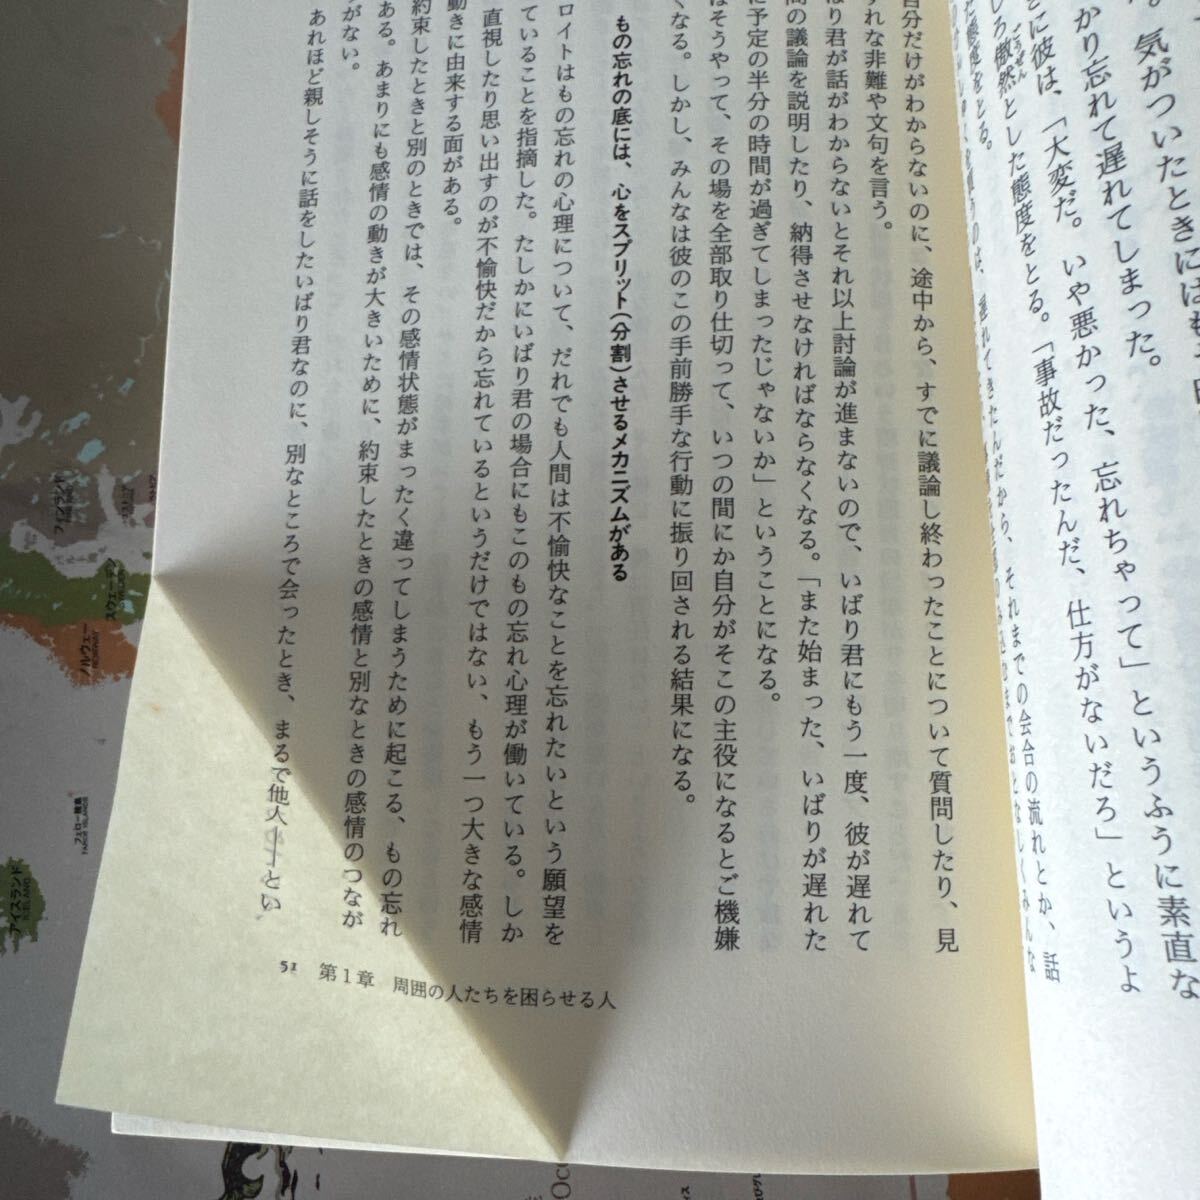 。気がついたときには
かり忘れて遅れてしまった。
に彼は、「大変だ。いや悪かった、忘れちゃって」というふうに素直な
しろ傲然とした態度をとる。「事故だったんだ、仕方がないだろ」というよ
ごうぜん
た態度をとる。
遅れてきたんだから、それまでの会合の流れとか、話
自分だけがわからないのに、途中から、すでに議論し終わったことについて質問したり、見
ずれな非難や文句を言う。
ばり君が話がわからないとそれ以上討論が進まないので、いばり君にもう一度、彼が遅れて
間の議論を説明したり、納得させなければならなくなる。「また始まった、いばりが遅れた
に予定の半分の時間が過ぎてしまったじゃないか」ということになる。
はそうやって、その場を全部取り仕切って、いつの間にか自分がそこの主役になるとご機嫌
くなる。しかし、みんなは彼のこの手前勝手な行動に振り回される結果になる。
もの忘れの底には、心をスプリット(分割)させるメカニズムがある
ロイトはもの忘れの心理について、だれでも人間は不愉快なことを忘れたいという願望を
ていることを指摘した。たしかにいばり君の場合にもこのもの忘れ心理が働いている。しか
直視したり思い出すのが不愉快だから忘れているというだけではない、もう一つ大きな感情
動きに由来する面がある。
約束したときと別のときでは、その感情状態がまったく違ってしまうために起こる、もの忘れ
ある。あまりにも感情の動きが大きいために、約束したときの感情と別なときの感情のつなが
がない。
あれほど親しそうに話をしたいばり君なのに、別なところで会ったとき、まるで他人
とい
51 第1章 周囲の人たちを困らせる人
フィンランド
スウェーデン
SWEDEN
ノルウェー
NORWAY
フェロー諸島
アイスランド
ICELAND
Oc